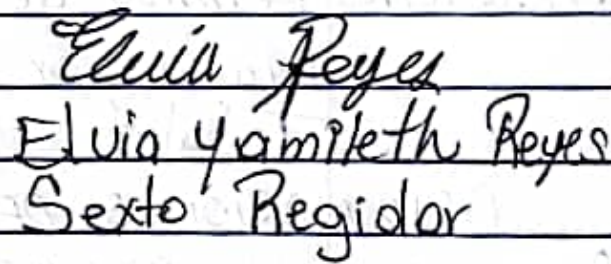 Elvia Reyes
Elvia Yamileth Reyes
Sexto Regidor